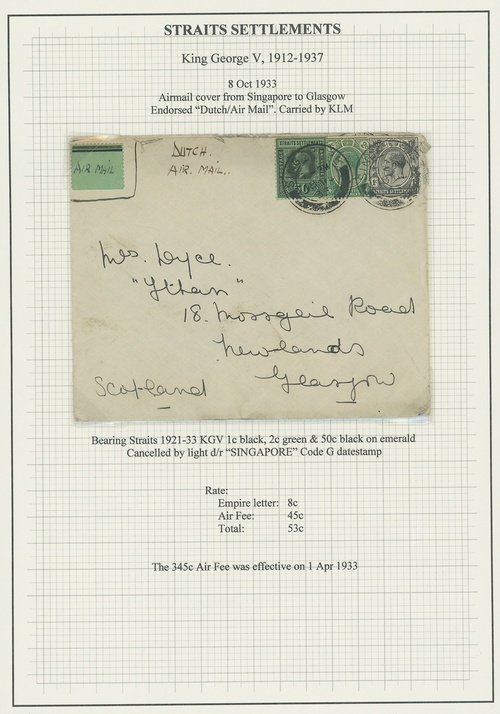 STRAITS SETTLEMENTS
King George V, 1912-1937
8 Oct 1933
Airmail cover from Singapore to Glasgow
Endorsed “Dutch/Air Mail”. Carried by KLM
AIR MAIL
DUTCH.
AIR. MAIL..
STRAITS SETTLEMENTS
STRAITS SETTLEMENTS
Mrs. Dyce.
"Ythan"
18. Mossgeil Road
Newlands
Glasgow
Scotland
Bearing Straits 1921-33 KGV 1c black, 2c green & 50c black on emerald
Cancelled by light d/r “SINGAPORE” Code G datestamp
Rate:
Empire letter: 8c
Air Fee: 45c
Total: 53c
The 345c Air Fee was effective on 1 Apr 1933